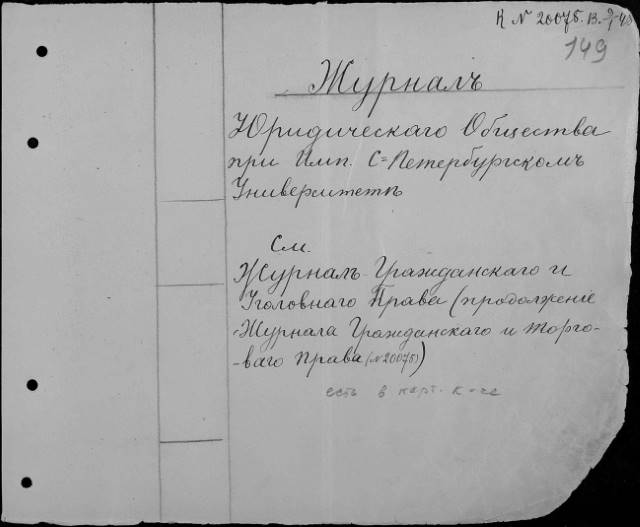 К № 20075. В.
149
Журналъ
Юридическаго Общества
при Имп. С=Петербургскомъ
Университетѣ
См.
Журналъ Гражданскаго и
Уголовнаго Права (продолженіе
Журнала Гражданскаго и Торго-
-ваго Права (№20075))
есть в карт. к-ге